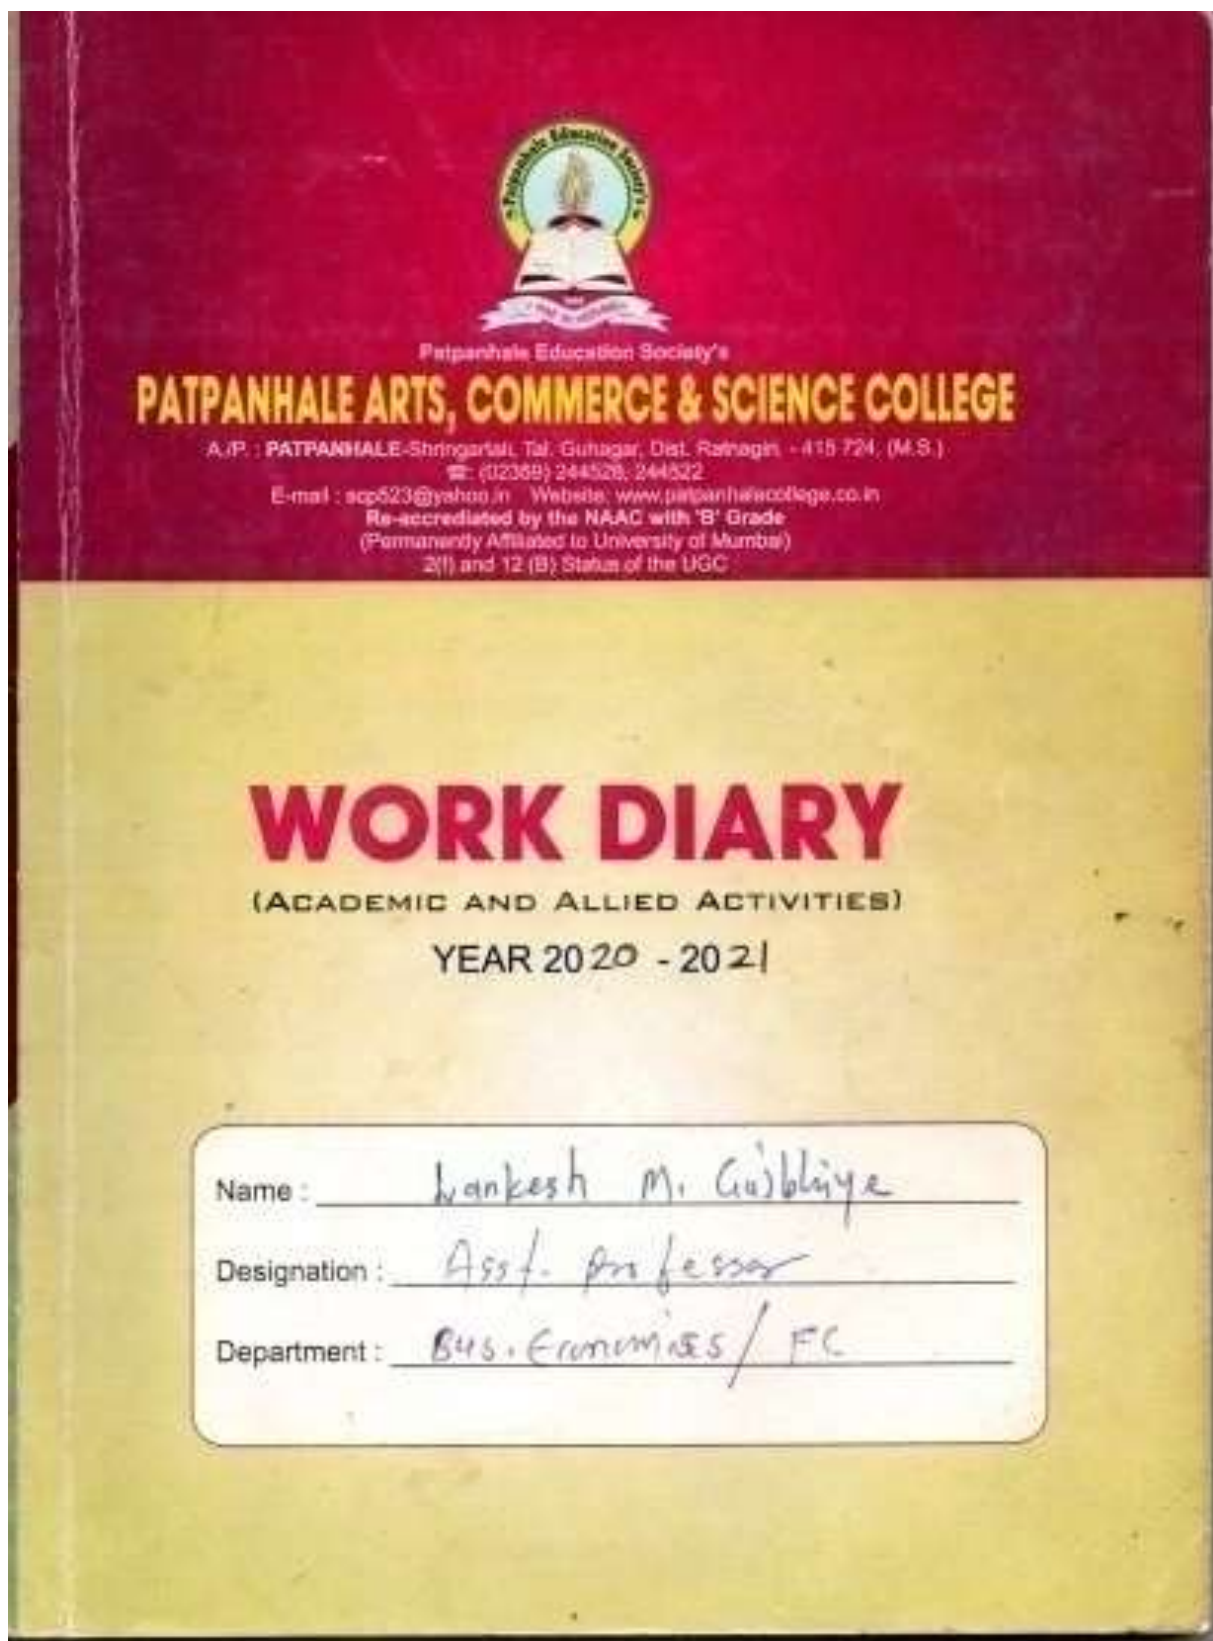 Patpanhale Education Society's
Patpanhale Education Society's
PATPANHALE ARTS, COMMERCE & SCIENCE COLLEGE
A./P. : PATPANHALE-Shringartali, Tal. Guhagar, Dist. Ratnagiri. - 415 724. (M.S.)
☎: (02359) 244528, 244522
E-mail : acp523@yahoo.in Website: www.patpanhalecollege.co.in
Re-accrediated by the NAAC with 'B' Grade
(Permanently Affiliated to University of Mumbai)
2(f) and 12 (B) Status of the UGC
WORK DIARY
(ACADEMIC AND ALLIED ACTIVITIES)
YEAR 2020 - 2021
Name : Lankesh M. Gajbhiye
Designation : Asst. Professor
Department : Bus. Economices / FC